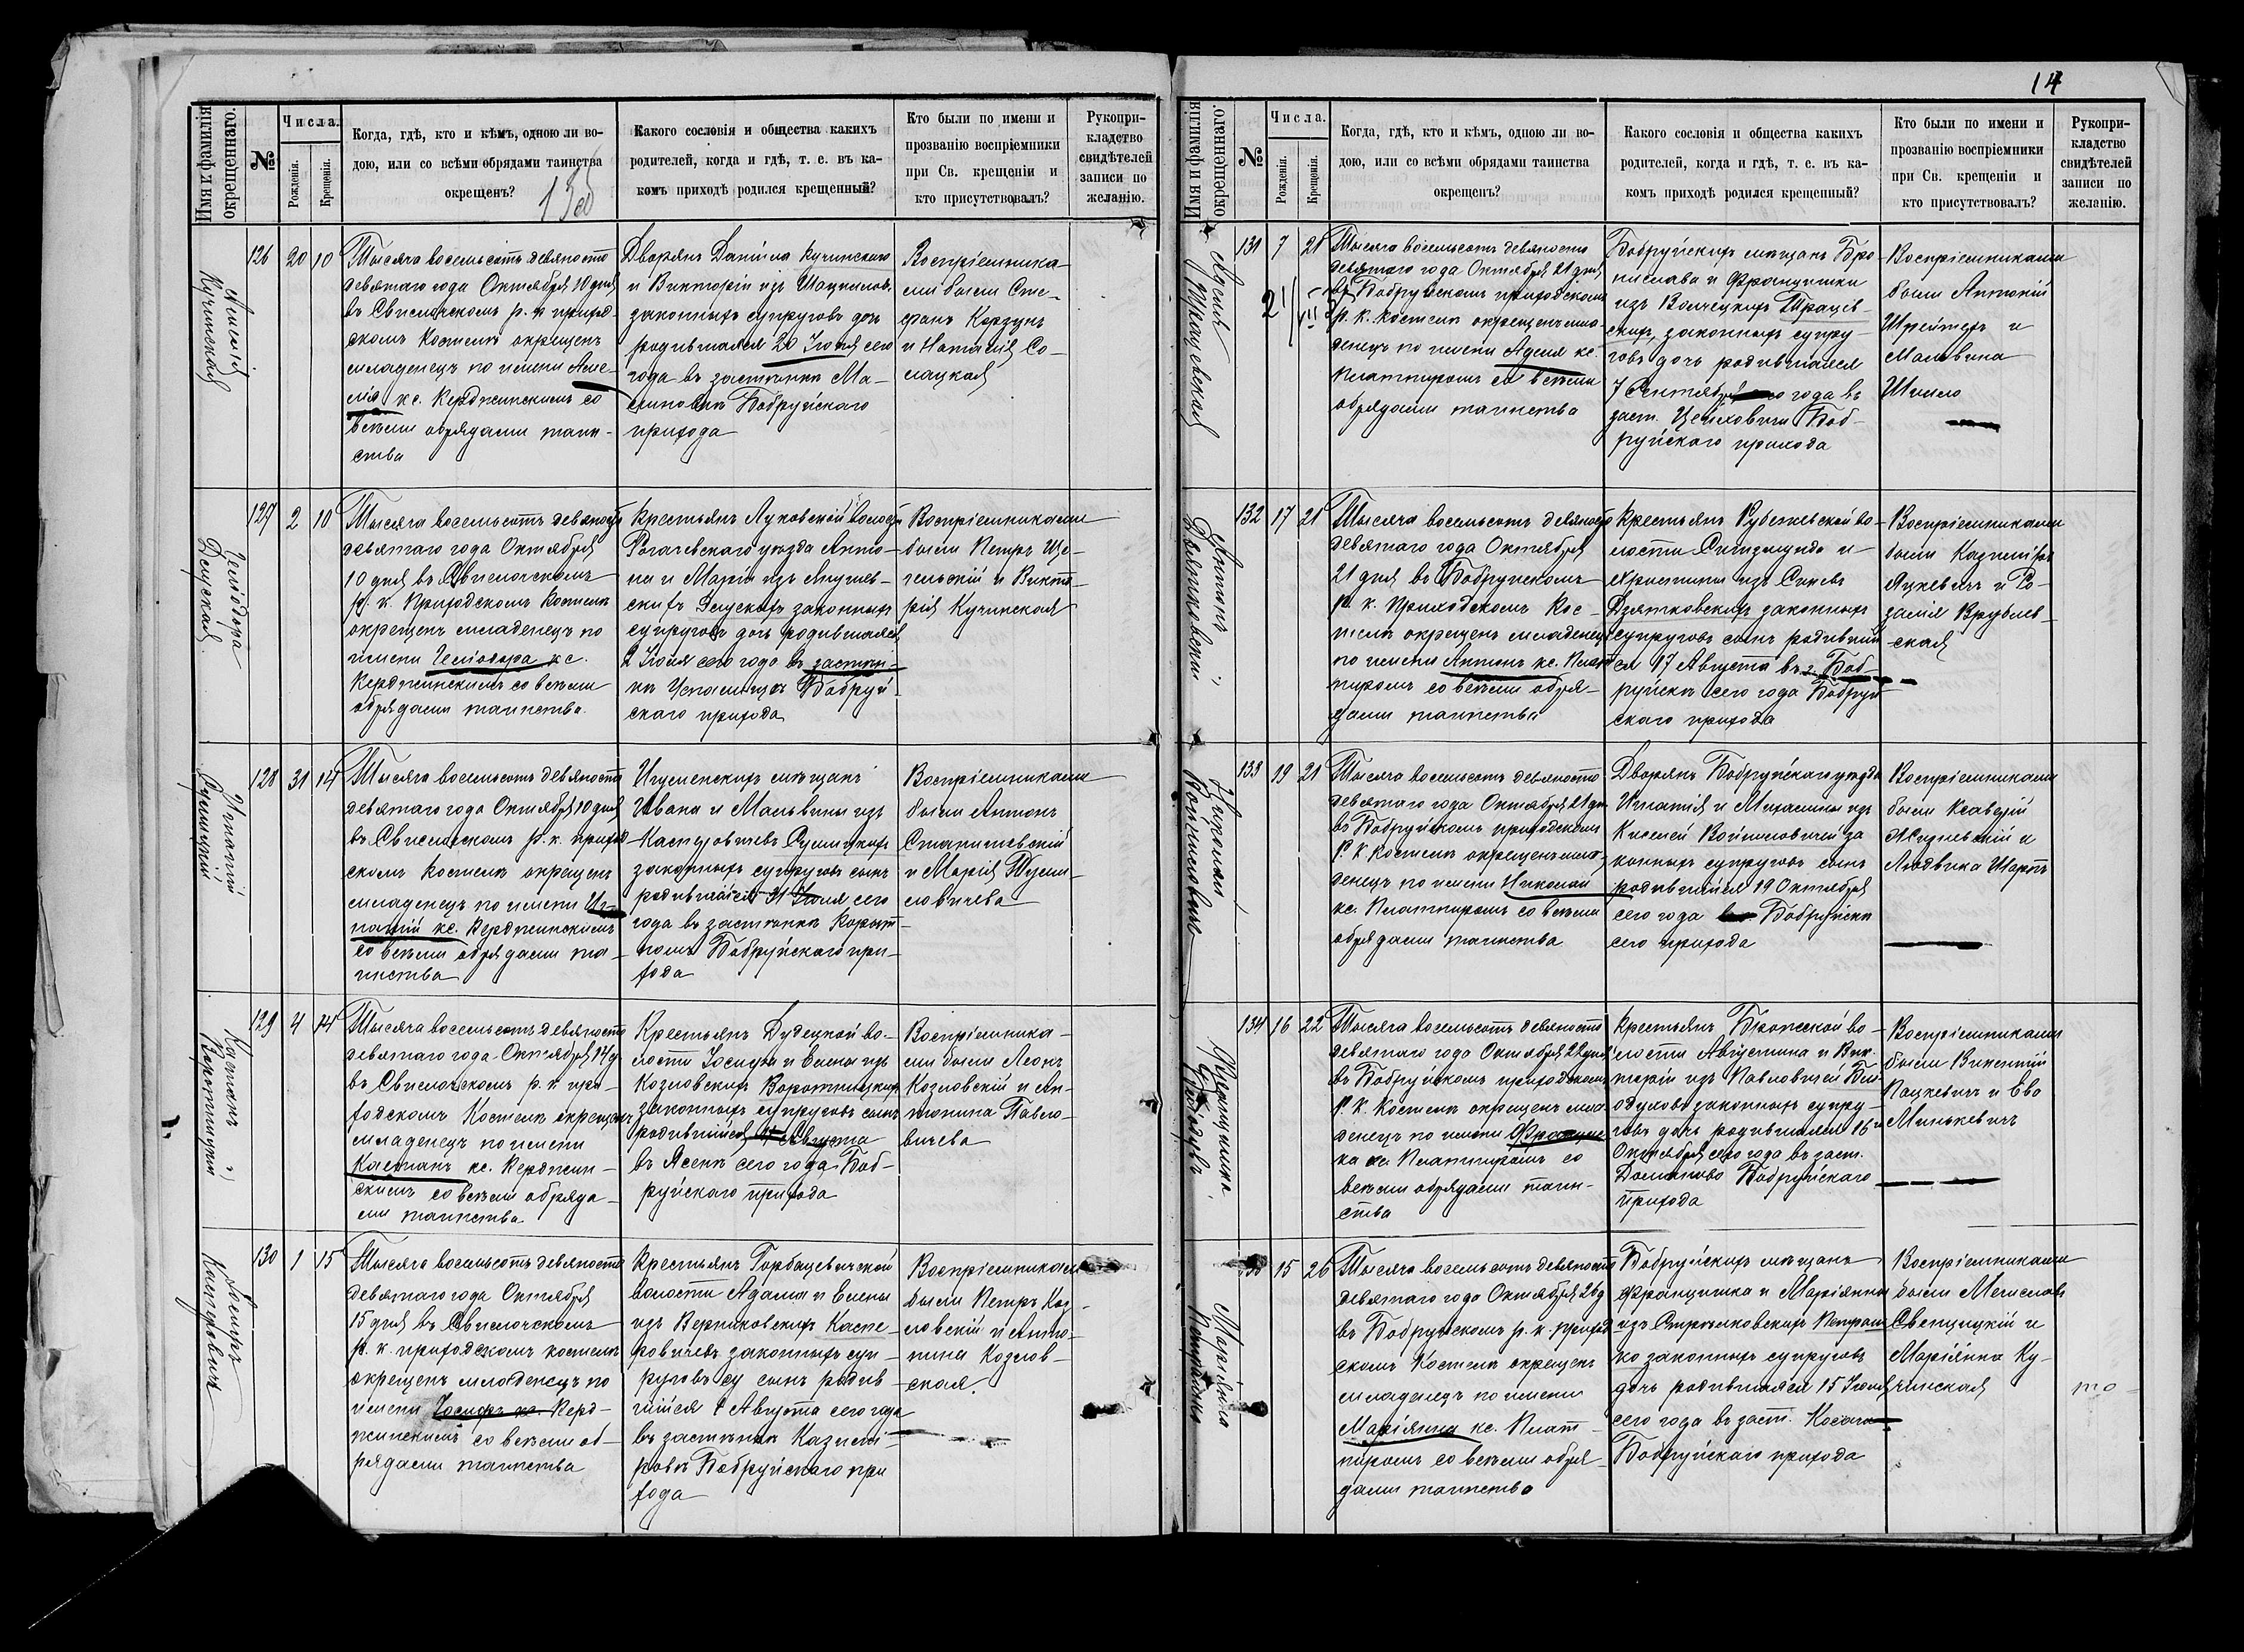 14
Имя и фамилія окрещеннаго.
№
Числа.
Рожденія.
Крещенія.
Когда, гдѣ, кто и кѣмъ, одною ли во-
дою, или со всѣми обрядами таинства
окрещенъ?
Какого сословія и общества какихъ
родителей, когда и гдѣ, т. е. въ ка-
комъ приходѣ родился крещенный?
Кто были по имени и
прозванію воспріемники
при Св. крещеніи и
кто присутствовалъ?
Рукопри-
кладство
свидѣтелей
записи по
желанію.
Кучинская
126
20
10
Тысяча восемьсотъ девяносто
девятаго года Октября 10 дня
въ Свислочскомъ р. к. приход-
скомъ Костелѣ окрещенъ
младенецъ по имени Аме-
лія кс. Керджинскимъ со
всѣми обрядами таин-
ства
Дворянъ Даніила Кучинскаго
и Викторіи изъ
законныхъ супруговъ дочь
родившаяся 20 Іюля сего
года въ застѣнкѣ Ма-
Бобруйскаго
прихода
Воспріемника-
ми были Сте-
фанъ Корзунъ
и Наталія Со-
лацкая
127
2
10
Тысяча восемьсотъ девяносто
девятаго года Октября
10 дня въ Свислочскомъ
р. к. Приходскомъ Костелѣ
окрещенъ младенецъ по
имени Геліодора кс.
Керджинскимъ со всѣми
обрядами таинства
Крестьянъ Луковской волости
Рогачевскаго уѣзда Анто-
на и Маріи изъ Янушев-
скихъ законныхъ
супруговъ дочь родившаяся
2 Іюля сего года въ застѣн-
кѣ Бобруй-
скаго прихода
Воспріемниками
были Петръ Ще-
гельскій и Викто-
рія Кучинская
Игнатій
128
31
14
Тысяча восемьсотъ девяносто
девятаго года Октября 10 дня
въ Свислочскомъ р. к. приход
скомъ Костелѣ окрещенъ
младенецъ по имени Иг-
натій кс. Керджинскимъ
со всѣми обрядами та-
инства
Игуменскихъ мѣщанъ
Ивана и Мальвины изъ
законныхъ супруговъ сынъ
родившійся 31 Іюля сего
года въ застѣнкѣ
Бобруйскаго при-
хода
Воспріемниками
были Антонъ
Станишевскій
и Марія
Каетанъ
Воротницкій
129
4
14
Тысяча восемьсотъ девяносто
девятаго года Октября 14 д.
въ Свислочскомъ р. к. при-
ходскомъ Костелѣ окрещенъ
младенецъ по имени
Каетанъ кс. Керджин-
скимъ со всѣми обряда-
ми таинства
Крестьянъ Дудецкой во-
лости Іосифа и Елены изъ
Козловскихъ Воротницкихъ
законныхъ супруговъ сынъ
родившійся 4 Августа
въ Ясенѣ сего года Боб-
руйскаго прихода
Воспріемника-
ми были Леонъ
Козловскій и Ан-
тонина Павло-
вичева
130
1
15
Тысяча восемьсотъ девяносто
девятаго года Октября
15 дня въ Свислочскомъ
р. к. приходскомъ костелѣ
окрещенъ младенецъ по
имени Іосифъ кс. Керд-
жинскимъ со всѣми об-
рядами таинства
Крестьянъ Горбацевичской
волости Адама и Елены
изъ Верниковскихъ Каспе-
ровичевъ законныхъ суп-
руговъ су сынъ родив
шійся 1 Августа сего года
въ застѣнкѣ Казимі-
ровкѣ Бобруйскаго при
хода
Воспріемниками
были Петръ Коз-
ловскій и Анто-
нина Козлов-
ская.
Имя и фамилія окрещеннаго.
№
Числа.
Рожденія.
Крещенія.
Когда, гдѣ, кто и кѣмъ, одною ли во-
дою, или со всѣми обрядами таинства
окрещенъ?
Какого сословія и общества какихъ
родителей, когда и гдѣ, т. е. въ ка-
комъ приходѣ родился крещенный?
Кто были по имени и
прозванію воспріемники
при Св. крещеніи и
кто присутствовалъ?
Рукопри-
кладство
свидѣтелей
записи по
желанію.
131
7
21
Тысяча восемьсотъ девяносто
девятаго года Октября 21 дня
въ Бобруйскомъ приходскомъ
р. к. костелѣ окрещенъ мла-
денецъ по имени Аделя кс.
Пиаттиромъ со всѣми
обрядами таинства
Бобруйскихъ мѣщанъ Бро-
нислава и Францишки
изъ
законныхъ супру-
говъ дочь родившаяся
7 Сентября сего года въ
заст. Боб-
руйскаго прихода
Воспріемниками
были Антоній
и
Мальвина
Антонъ
Дзятковскій
132
17
21
Тысяча восемьсотъ девяносто
девятаго года Октября
21 дня въ Бобруйскомъ
р. к. Приходскомъ Кос-
телѣ окрещенъ младенецъ
по имени Антонъ кс. Пиат
тиромъ со всѣми обря-
дами таинства
Крестьянъ во-
лости Сигизмунда и
Христины изъ
Дзятковскихъ законныхъ
супруговъ сынъ родивший
ся 17 Августа въ г. Боб-
руйскѣ сего года Бобруй-
скаго прихода
Воспріемниками
были Казиміръ
Яцкевичъ и Ро-
залія Врублев-
ская
Николай
133
19
21
Тысяча восемьсотъ девяносто
девятаго года Октября 21 дня
въ Бобруйскомъ приходскомъ
р. к. костелѣ окрещенъ мла-
денецъ по имени Николай
кс. Пиаттиромъ со всѣми
обрядами таинства
Дворянъ Бобруйскаго уѣзда
Игнатія и Михалины изъ
за
конныхъ супруговъ сынъ
родившійся 19 Октября
сего года въ Бобруйскѣ
сего прихода
Воспріемниками
были Ксаверій
и
Людвика
Францишка
134
16
22
Тысяча восемьсотъ девяносто
девятаго года Октября 22 дня
въ Бобруйскомъ приходскомъ
р. к. Костелѣ окрещенъ мла
денецъ по имени Францыш
ка кс. Пиаттиромъ со
всѣми обрядами таин-
ства
Крестьянъ Брожской во-
лости Августина и Вик-
торіи изъ Павловичей
законныхъ супру-
говъ дочь родившаяся 16
Октября сего года въ заст.
Доманово Бобруйскаго
прихода
Воспріемниками
были Викентій
Пацкевичъ и Ева
Минкевичъ
Маріянна
15
26
Тысяча восемьсотъ девяносто
девятаго года Октября 26 д
въ Бобруйскомъ р. к. приход
скомъ Костелѣ окрещенъ
младенецъ по имени
Маріянна кс. Пиат-
тиромъ со всѣми обря-
дами таинства
Бобруйскихъ мѣщанъ
Францишка и Маріянны
изъ
законныхъ супруговъ
дочь родившаяся 15 Іюля
сего года въ заст.
Бобруйскаго прихода
Воспріемниками
были Мечиславъ
Свенцицкій и
Маріянна Ку-
чинская